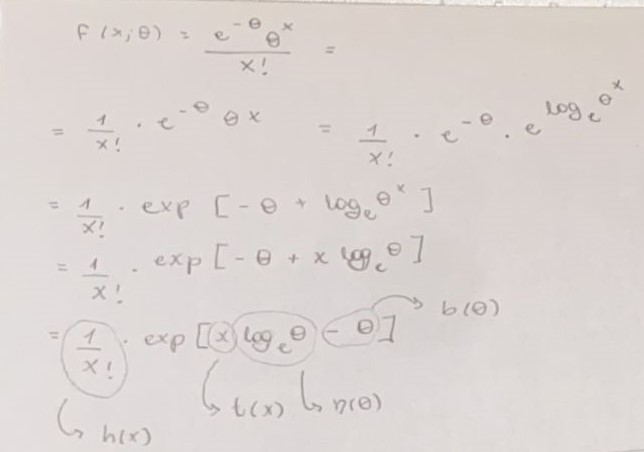 f(x;θ) = e^{-θ} θ^x / x! =
= 1/x! · e^{-θ} θ x = 1/x! · e^{-θ} · e^{log_e θ^x}
= 1/x! · exp [-θ + log_e θ^x]
= 1/x! · exp [-θ + x log_e θ]
= 1/x! · exp [x log_e θ - θ] → b(θ)
↳ h(x) ↳ t(x) ↳ η(θ)